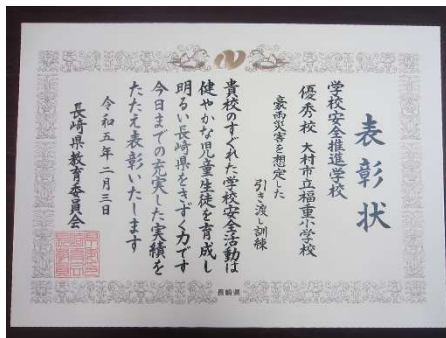 表彰状
学校安全推進学校
優秀校 大村市立福重小学校
豪雨災害を想定した
引き渡し訓練
貴校のすぐれた学校安全活動は
健やかな児童生徒を育成し
明るい長崎県をきずく力です
今日までの充実した実績を
たたえ表彰いたします
令和五年二月三日
長崎県教育委員会
長崎県